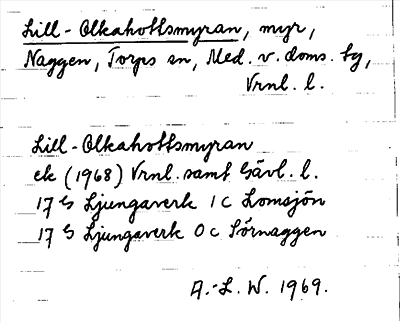 Lill-Olkahottsmyran, myr,
Naggen, Torps sn, Med. v. doms. sg,
Vrnl. l.
Lill-Olkahottsmyran
ek (1968) Vrnl. samt Gävl. l.
17 G Ljungaverk 1 c Lomsjön
17 G Ljungaverk 0 c Sörnaggen
A.-L. W. 1969.